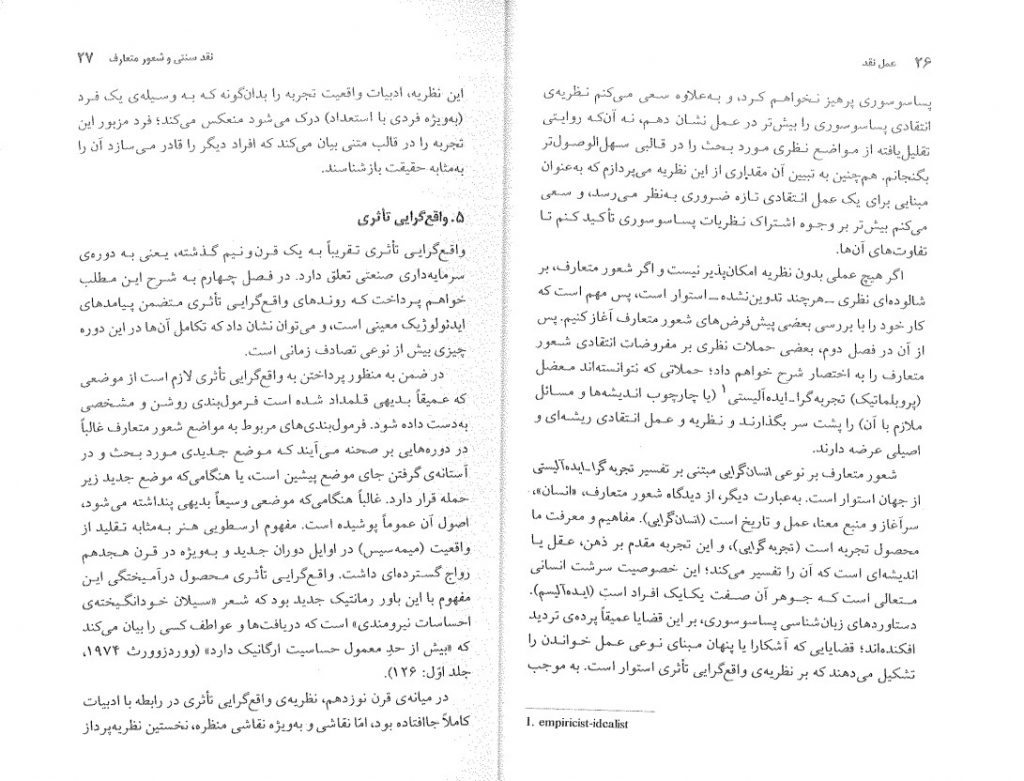 ۲۶ عمل نقد
پساسوسوری پرهیز نخواهم کرد، و به‌علاوه سعی می‌کنم نظریه‌ی
انتقادی پساسوسوری را بیش‌تر در عمل نشان دهم، نه آن‌که روایتی
تقلیل‌یافته از مواضع نظری مورد بحث را در قالبی سهل‌الوصول‌تر
بگنجانم. هم‌چنین به تبیین آن مقداری از این نظریه می‌پردازم که به‌عنوان
مبنایی برای یک عمل انتقادی تازه ضروری به‌نظر می‌رسد، و سعی
می‌کنم بیش‌تر بر وجوه اشتراک نظریات پساسوسوری تأکید کنم تا
تفاوت‌های آن‌ها.
اگر هیچ عملی بدون نظریه امکان‌پذیر نیست و اگر شعور متعارف، بر
شالوده‌ای نظری ــ هرچند تدوین‌نشده ــ استوار است، پس مهم است که
کار خود را با بررسی بعضی پیش‌فرض‌های شعور متعارف آغاز کنیم. پس
از آن در فصل دوم، بعضی حملات نظری بر مفروضات انتقادی شعور
متعارف را به اختصار شرح خواهم داد؛ حملاتی که نتوانسته‌اند معضل
(پروبلماتیک) تجربه‌گرا-ایده‌آلیستی۱ (یا چارچوب اندیشه‌ها و مسائل
ملازم با آن) را پشت سر بگذارند و نظریه و عمل انتقادی ریشه‌ای و
اصیلی عرضه دارند.
شعور متعارف بر نوعی انسان‌گرایی مبتنی بر تفسیر تجربه گرا-ایده‌آلیستی
از جهان استوار است. به‌عبارت دیگر، از دیدگاه شعور متعارف، «انسان»،
سرآغاز و منبع معنا، عمل و تاریخ است (انسان‌گرایی). مفاهیم و معرفت ما
محصول تجربه است (تجربه گرایی)، و این تجربه مقدم بر ذهن، عقل یا
اندیشه‌ای است که آن را تفسیر می‌کند؛ این خصوصیت سرشت انسانی
متعالی است که جوهر آن صفت یکایک افراد است (ایده‌آلیسم).
دستاوردهای زبان‌شناسی پساسوسوری، بر این قضایا عمیقاً پرده‌ی تردید
افکنده‌اند؛ قضایایی که آشکارا یا پنهان مبنای نوعی عمل خواندن را
تشکیل می‌دهند که بر نظریه‌ی واقع‌گرایی تأثری استوار است. به موجب
1. empiricist-idealist
نقد سنتی و شعور متعارف ۲۷
این نظریه، ادبیات واقعیت تجربه را بدان‌گونه که به وسیله‌ی یک فرد
(به‌ویژه فردی با استعداد) درک می‌شود منعکس می‌کند؛ فرد مزبور این
تجربه را در قالب متنی بیان می‌کند که افراد دیگر را قادر می‌سازد آن را
به‌مثابه حقیقت بازشناسند.
۵. واقع‌گرایی تأثری
واقع‌گرایی تأثری تقریباً به یک قرن‌ونیم گذشته، یعنی به دوره‌ی
سرمایه‌داری صنعتی تعلق دارد. در فصل چهارم به شرح این مطلب
خواهم پرداخت که روندهای واقع‌گرایی تأثری متضمن پیامدهای
ایدئولوژیک معینی است، و می‌توان نشان داد که تکامل آن‌ها در این دوره
چیزی بیش از نوعی تصادف زمانی است.
در ضمن به منظور پرداختن به واقع‌گرایی تأثری لازم است از موضعی
که عمیقاً بدیهی قلمداد شده است فرمول‌بندی روشن و مشخصی
به‌دست داده شود. فرمول‌بندی‌های مربوط به مواضع شعور متعارف غالباً
در دوره‌هایی بر صحنه می‌آیند که موضع جدیدی مورد بحث و در
آستانه‌ی گرفتن جای موضع پیشین است، یا هنگامی‌که موضع جدید زیر
حمله قرار دارد. غالباً هنگامی‌که موضعی وسیعاً بدیهی پنداشته می‌شود،
اصول آن عموماً پوشیده است. مفهوم ارسطویی هنر به‌مثابه تقلید از
واقعیت (میمه‌سیس) در اوایل دوران جدید و به‌ویژه در قرن هجدهم
رواج گسترده‌ای داشت. واقع‌گرایی تأثری محصول درآمیختگی این
مفهوم با این باور رمانتیک جدید بود که شعر «سیلان خودانگیخته‌ی
احساسات نیرومندی» است که دریافت‌ها و عواطف کسی را بیان می‌کند
که «بیش از حدِ معمول حساسیت ارگانیک دارد» (ووردزوورث ۱۹۷۴،
جلد اوّل: ۱۲۶).
در میانه‌ی قرن نوزدهم، نظریه‌ی واقع‌گرایی تأثری در رابطه با ادبیات
کاملاً جاافتاده بود، امّا نقاشی و به‌ویژه نقاشی منظره، نخستین نظریه‌پرداز